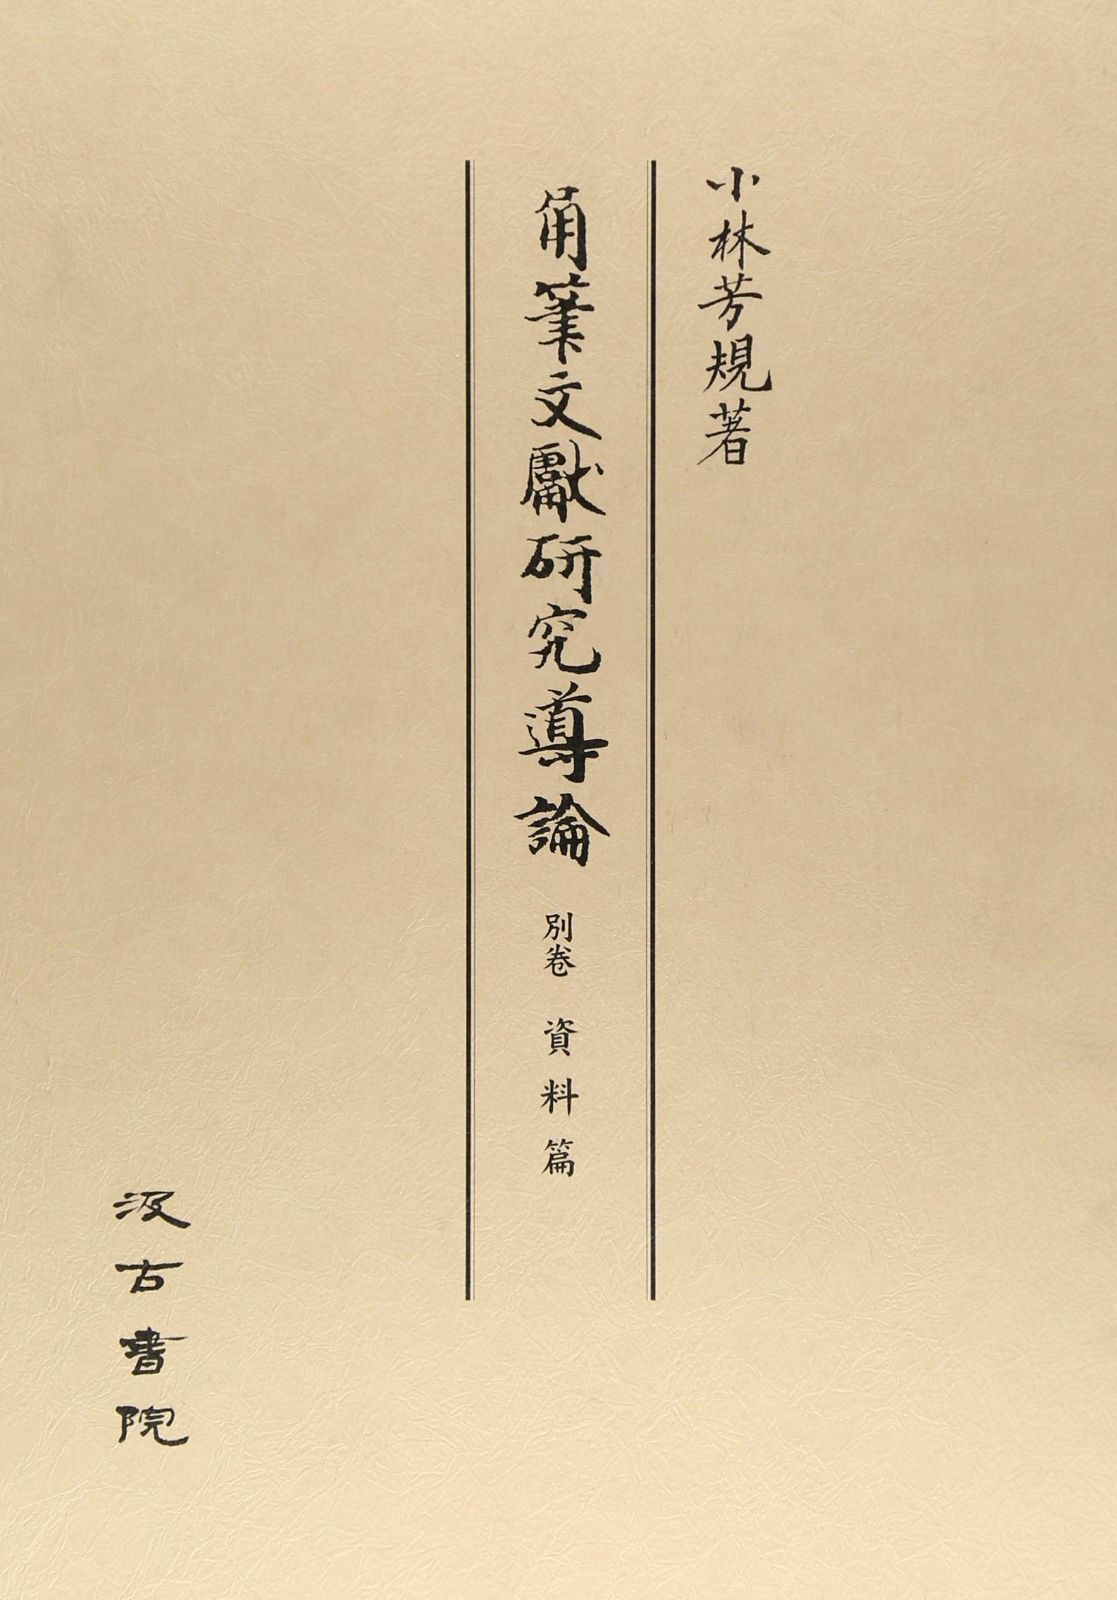 小林芳規著
角筆文獻研究導論 別卷 資料篇
汲古書院